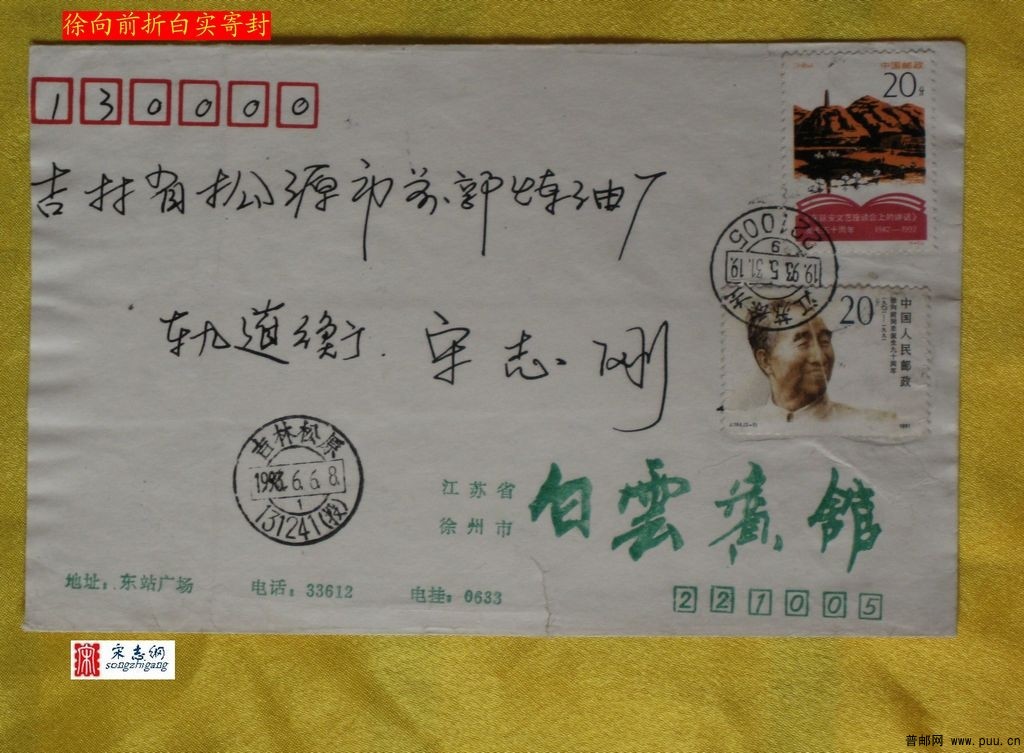 徐向前折白实寄封
130000
吉林省松源市前郭炼油厂
轨道衡 宋志刚
中国邮政
20分
在延安文艺座谈会上的讲话》
五十周年 1942—1992
221005
9
1993.5.31.19
江苏徐州
20分
中国人民邮政
徐向前同志诞生九十周年
一九〇一—一九九一
1991
吉林松原
1993.6.6.8.
1
131241(投)
江苏省
徐州市
白雲賓館
地址：东站广场 电话：33612 电挂：0633
221005
宋 宋志纲
songzhigang
普邮网 www.puu.cn